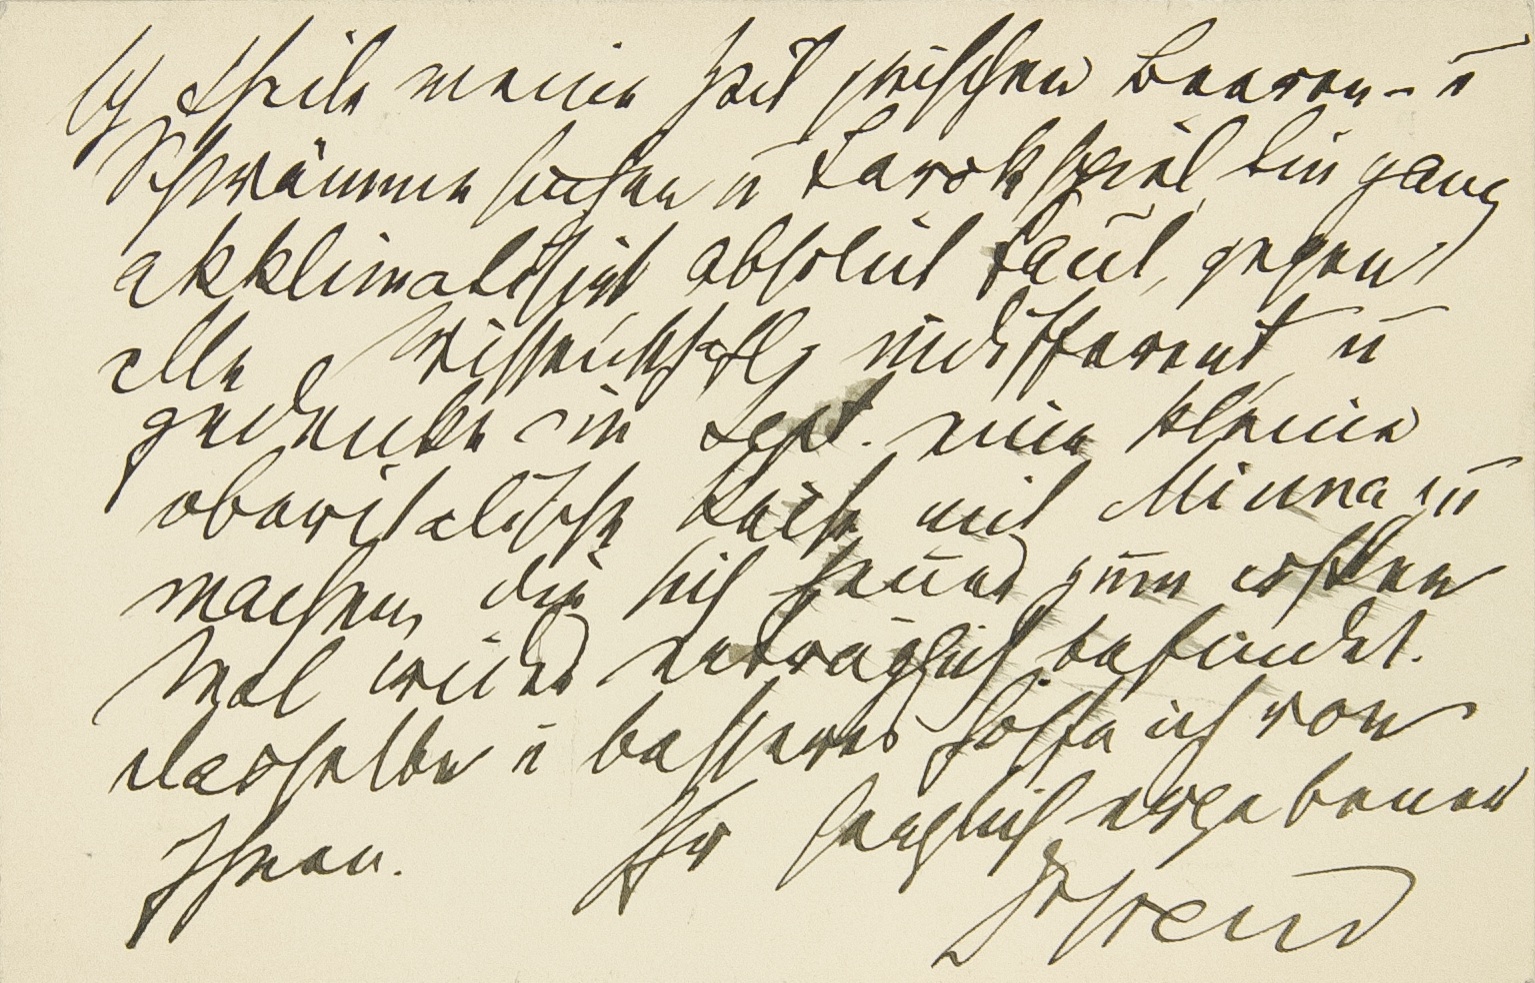 Ich theile meine Zeit zwischen Beeren- u
Schwämme suchen u Tarokspiel, bin ganz
akklimatisirt absolut faul, gegen
alle Wissenschaft indifferent u
gedenke im Sept. eine kleine
oberitalische Reise mit Minna zu
machen, die sich heuer zum ersten
Mal wieder erträglich befindet.
Dasselbe u besseres hoffe ich von
Ihnen. Ihr herzlich ergebener
DrFreud